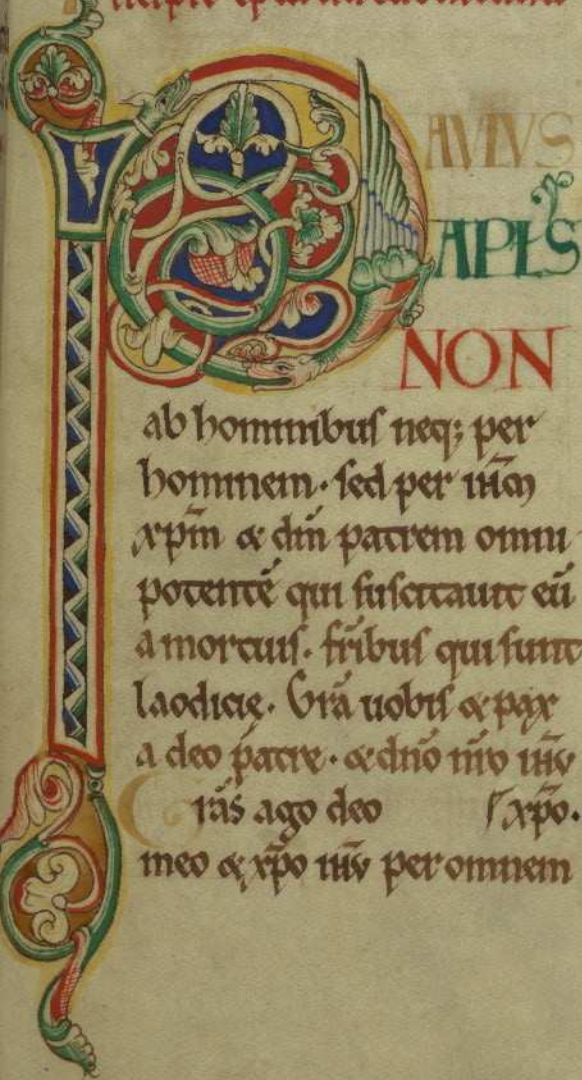 PAVLVS
APLS
NON
ab hominibus neq; per
hominem. sed per ihm
xpm & dm patrem omni
potentē qui suscitauit eū
a mortuis. fribus qui sunt
laodicie. Gra uobis & pax
a deo patre. & dno nro ihu
Gras ago deo xpo.
meo & xpo ihu per omnem